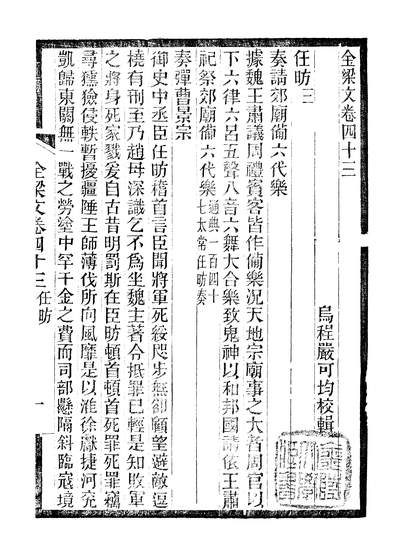 全梁文卷四十三
烏程嚴可均校輯
任昉三
奏請郊廟備六代樂
據魏王肅議周禮賓客皆作備樂況天地宗廟事之大者周官以
下六律六呂五聲八音六舞大合樂致鬼神以和邦國請依王肅
祀祭郊廟備六代樂通典一百四十
七太常任昉奏
奏彈曹景宗
御史中丞臣任昉稽首言臣聞將軍死綏咫步無卻顧望避敵逗
橈有刑至乃趙母深識乞不爲坐魏主著令抵罪已輕是知敗軍
之將身死家戮爰自古昔明罰斯在臣昉頓首頓首死罪死罪竊
尋獯獫侵軼暫擾疆陲王師薄伐所向風靡是以淮徐獻捷河兗
凱歸東關無一戰之勞塗中罕千金之費而司部懸隔斜臨寇境
全梁文卷四十三 任昉
一